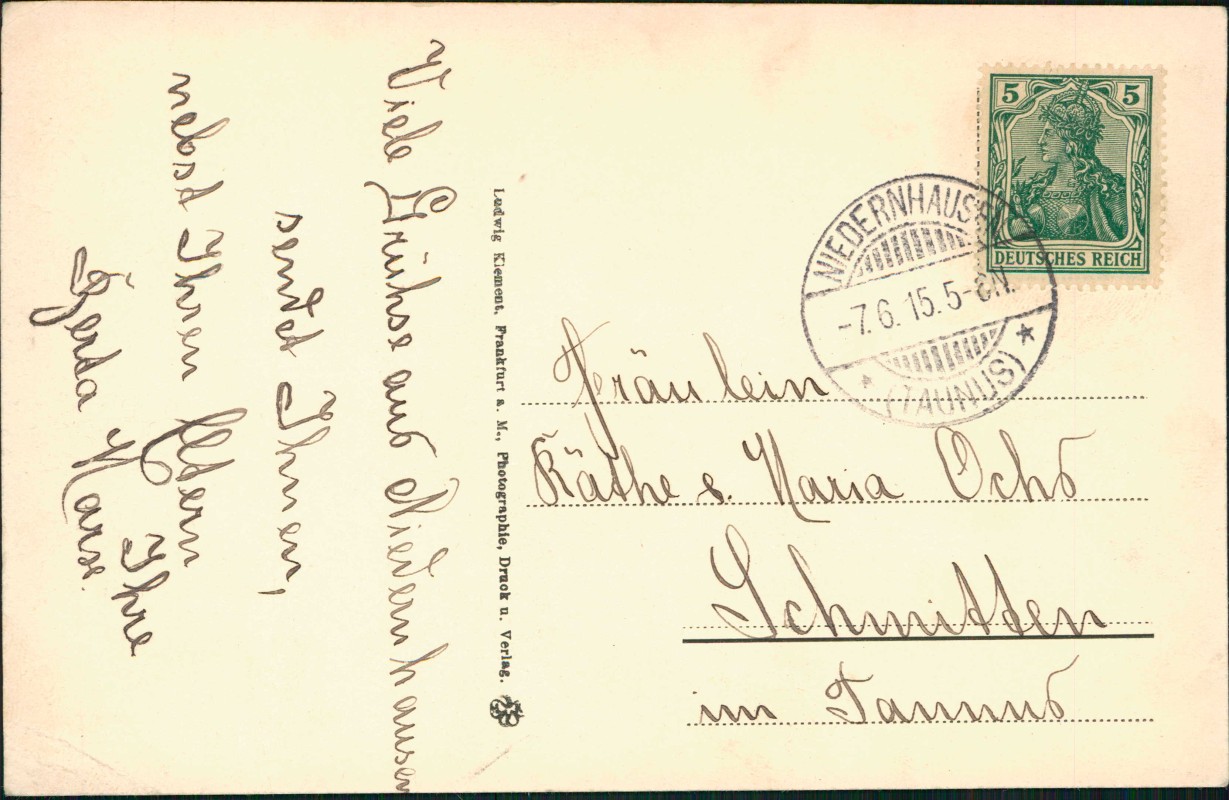 Viele Grühse aus Niedernhausen
sendet Ihnen,
nebst Ihren Eltern
Ihre
Gerta Marx.
Ludwig Klement, Frankfurt a. M., Photographie, Druck u. Verlag.
5 5
DEUTSCHES REICH
NIEDERNHAUSEN
-7.6.15.5-6N.
* (TAUNUS) *
Fräulein
Käthe u. Maria Ochs
Schmitten
im Taunus